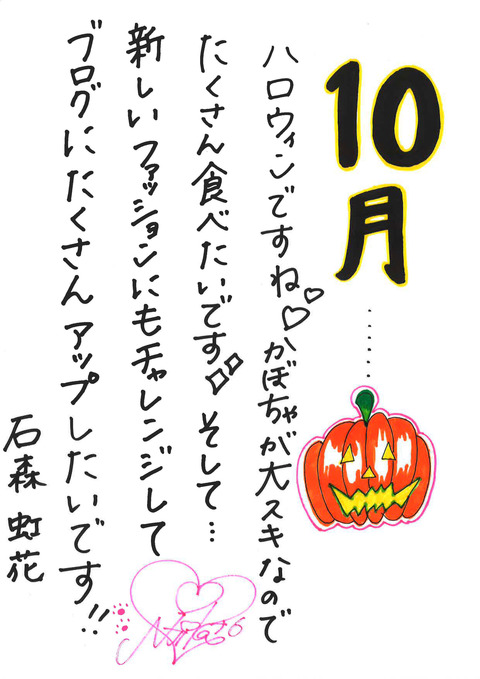 10月
ハロウィンですね♡♡かぼちゃが大スキなので
たくさん食べたいです そして…
新しいファッションにもチャレンジして
ブログにたくさんアップしたいです!!
石森 虹花